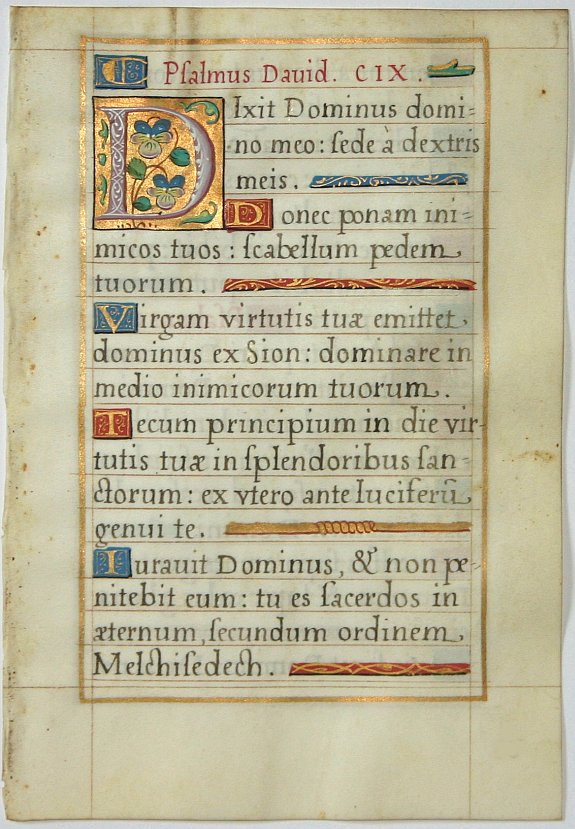 Psalmus Dauid. CIX.
Dixit Dominus domi=
no meo: sede à dextris
meis.
Donec ponam ini=
micos tuos: scabellum pedem
tuorum.
Virgam virtutis tuæ emittet
dominus ex Sion: dominare in
medio inimicorum tuorum.
Tecum principium in die vir-
tutis tuæ in splendoribus san-
ctorum: ex vtero ante luciferū
genui te.
Iurauit Dominus, & non pe-
nitebit eum: tu es sacerdos in
æternum, secundum ordinem
Melchisedech.